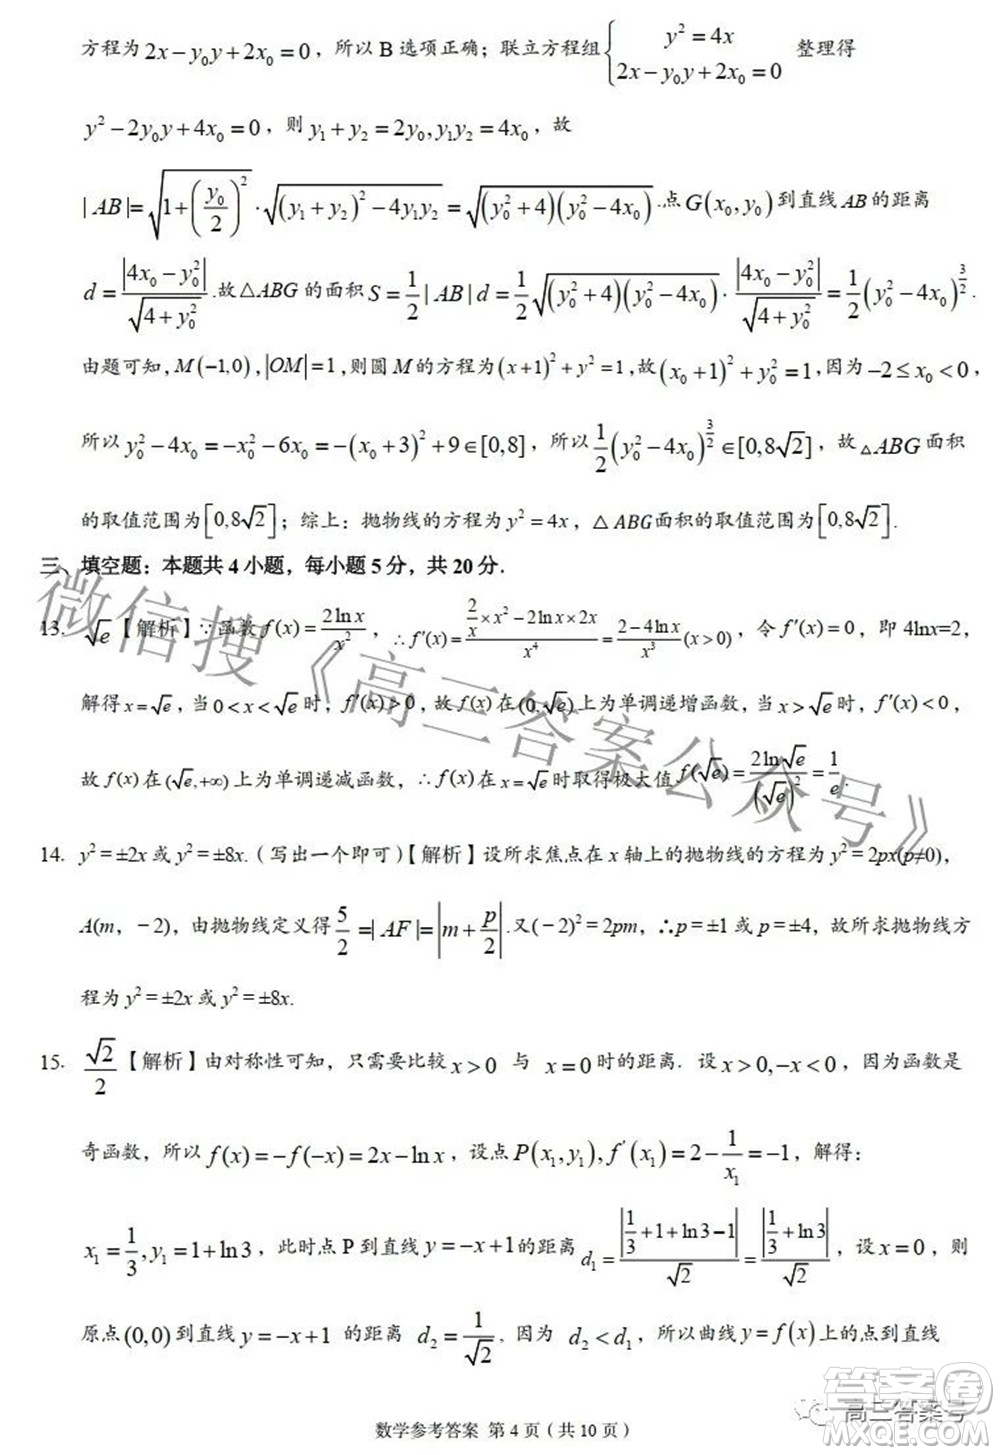 方程为2x−y₀y+2x₀=0，所以 B 选项正确；联立方程组{y²=4x 2x−y₀y+2x₀=0 整理得
y²−2y₀y+4x₀=0，则 y₁+y₂=2y₀,y₁y₂=4x₀，故
|AB|=√(1+(y₀/2)²)·√((y₁+y₂)²−4y₁y₂)=√((y₀²+4)(y₀²−4x₀)).点G(x₀,y₀)到直线AB的距离
d=|4x₀−y₀²|/√(4+y₀²).故△ABG 的面积S=1/2|AB|d=1/2√((y₀²+4)(y₀²−4x₀))·|4x₀−y₀²|/√(4+y₀²)=1/2(y₀²−4x₀)^(3/2).
由题可知，M(−1,0),|OM|=1,则圆M的方程为(x+1)²+y²=1,故(x₀+1)²+y₀²=1,因为−2≤x₀<0，
所以y₀²−4x₀=−x₀²−6x₀=−(x₀+3)²+9∈[0,8]，所以1/2(y₀²−4x₀)^(3/2)∈[0,8√2]，故△ABG面积
的取值范围为[0,8√2]；综上：抛物线的方程为y²=4x，△ABG面积的取值范围为[0,8√2].
三、填空题：本题共 4 小题，每小题 5 分，共 20 分．
13. √e【解析】∵函数f(x)=2lnx/x²，∴f′(x)=(2/x×x²−2lnx×2x)/x⁴=(2−4lnx)/x³(x>0)，令 f′(x)=0，即 4lnx=2，
解得x=√e，当 0<x<√e时，f′(x)>0，故 f(x)在(0,√e)上为单调递增函数，当x>√e时，f′(x)<0，
故 f(x)在(√e,+∞)上为单调递减函数，∴f(x)在x=√e时取得极大值f(√e)=2ln√e/(√e)²=1/e.
14. y²=±2x 或 y²=±8x.（写出一个即可）【解析】设所求焦点在 x 轴上的抛物线的方程为 y²=2px(p≠0)，
A(m，−2)，由抛物线定义得5/2=|AF|=|m+p/2|.又(−2)²=2pm，∴p=±1 或 p=±4，故所求抛物线方
程为 y²=±2x 或 y²=±8x.
15. √2/2【解析】由对称性可知，只需要比较x>0 与 x=0时的距离．设 x>0,−x<0，因为函数是
奇函数，所以f(x)=−f(−x)=2x−lnx，设点P(x₁,y₁),f′(x₁)=2−1/x₁=−1，解得：
x₁=1/3,y₁=1+ln3，此时点 P 到直线y=−x+1的距离d₁=|1/3+1+ln3−1|/√2=|1/3+ln3|/√2，设x=0，则
原点(0,0)到直线y=−x+1 的距离 d₂=1/√2，因为 d₂<d₁，所以曲线y=f(x)上的点到直线
数学参考答案 第 4 页（共 10 页）
微信搜《高三答案公众号》
高三答案号
答案圈
MXQE.COM